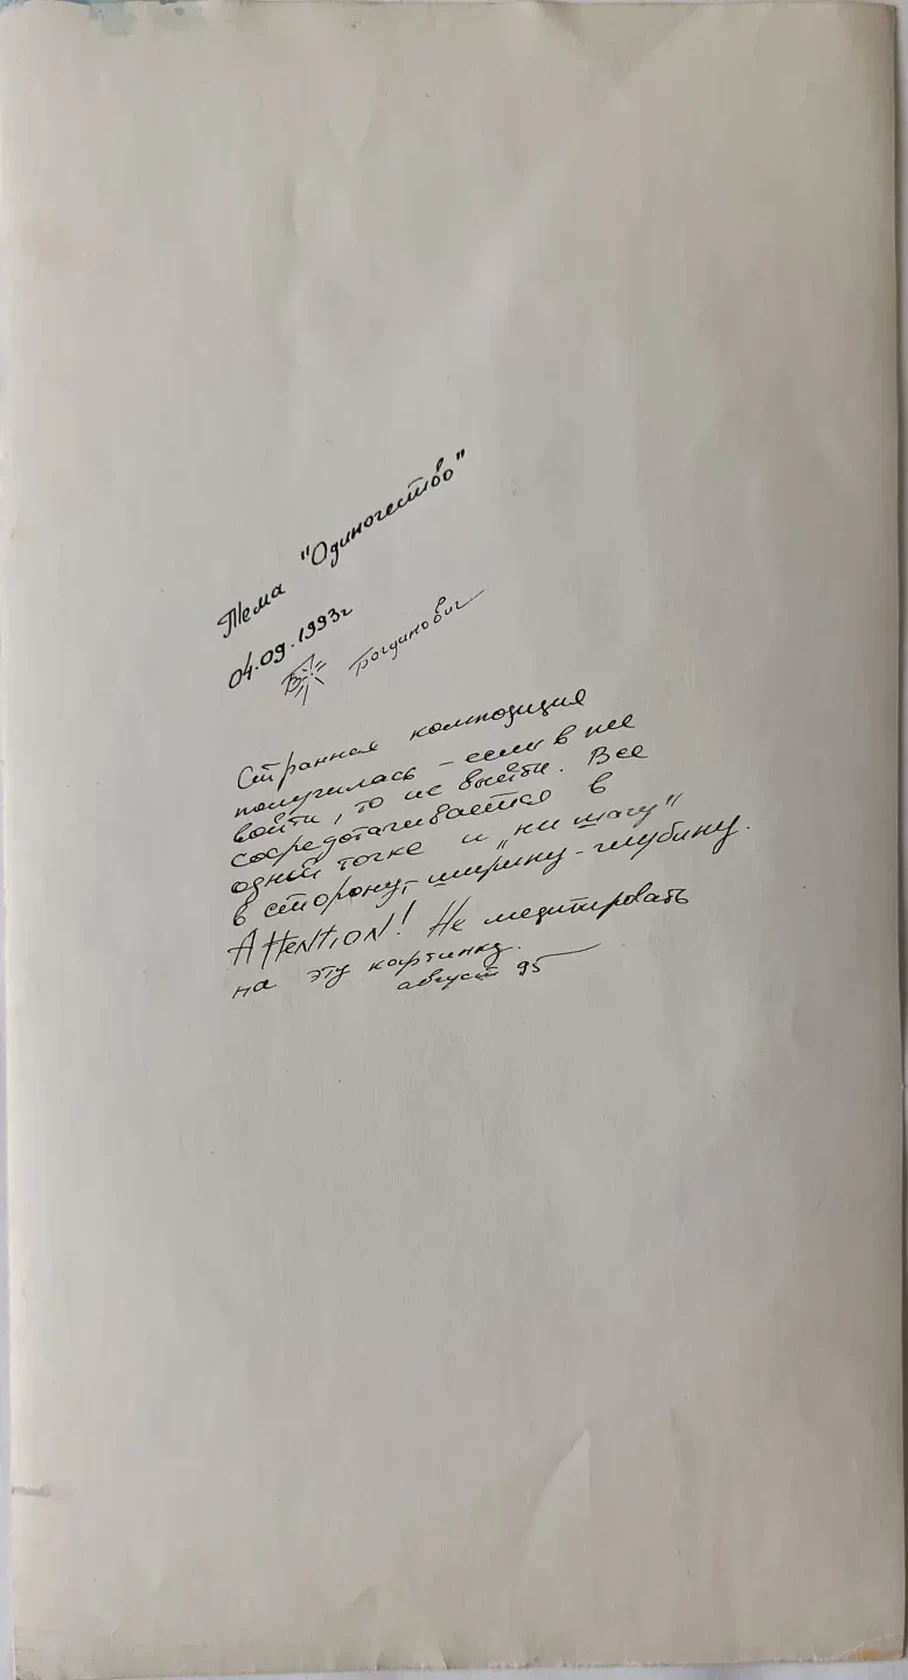 Тема "Одиночество"
04.09.1993г
Богданович
Странная композиция
получилась - если в нее
войти, то не выйти. Все
сосредотачивается в
одной точке и "ни шагу"
в сторону, ширину - глубину.
ATTENTION! Не медитировать
на эту картинку.
август 95